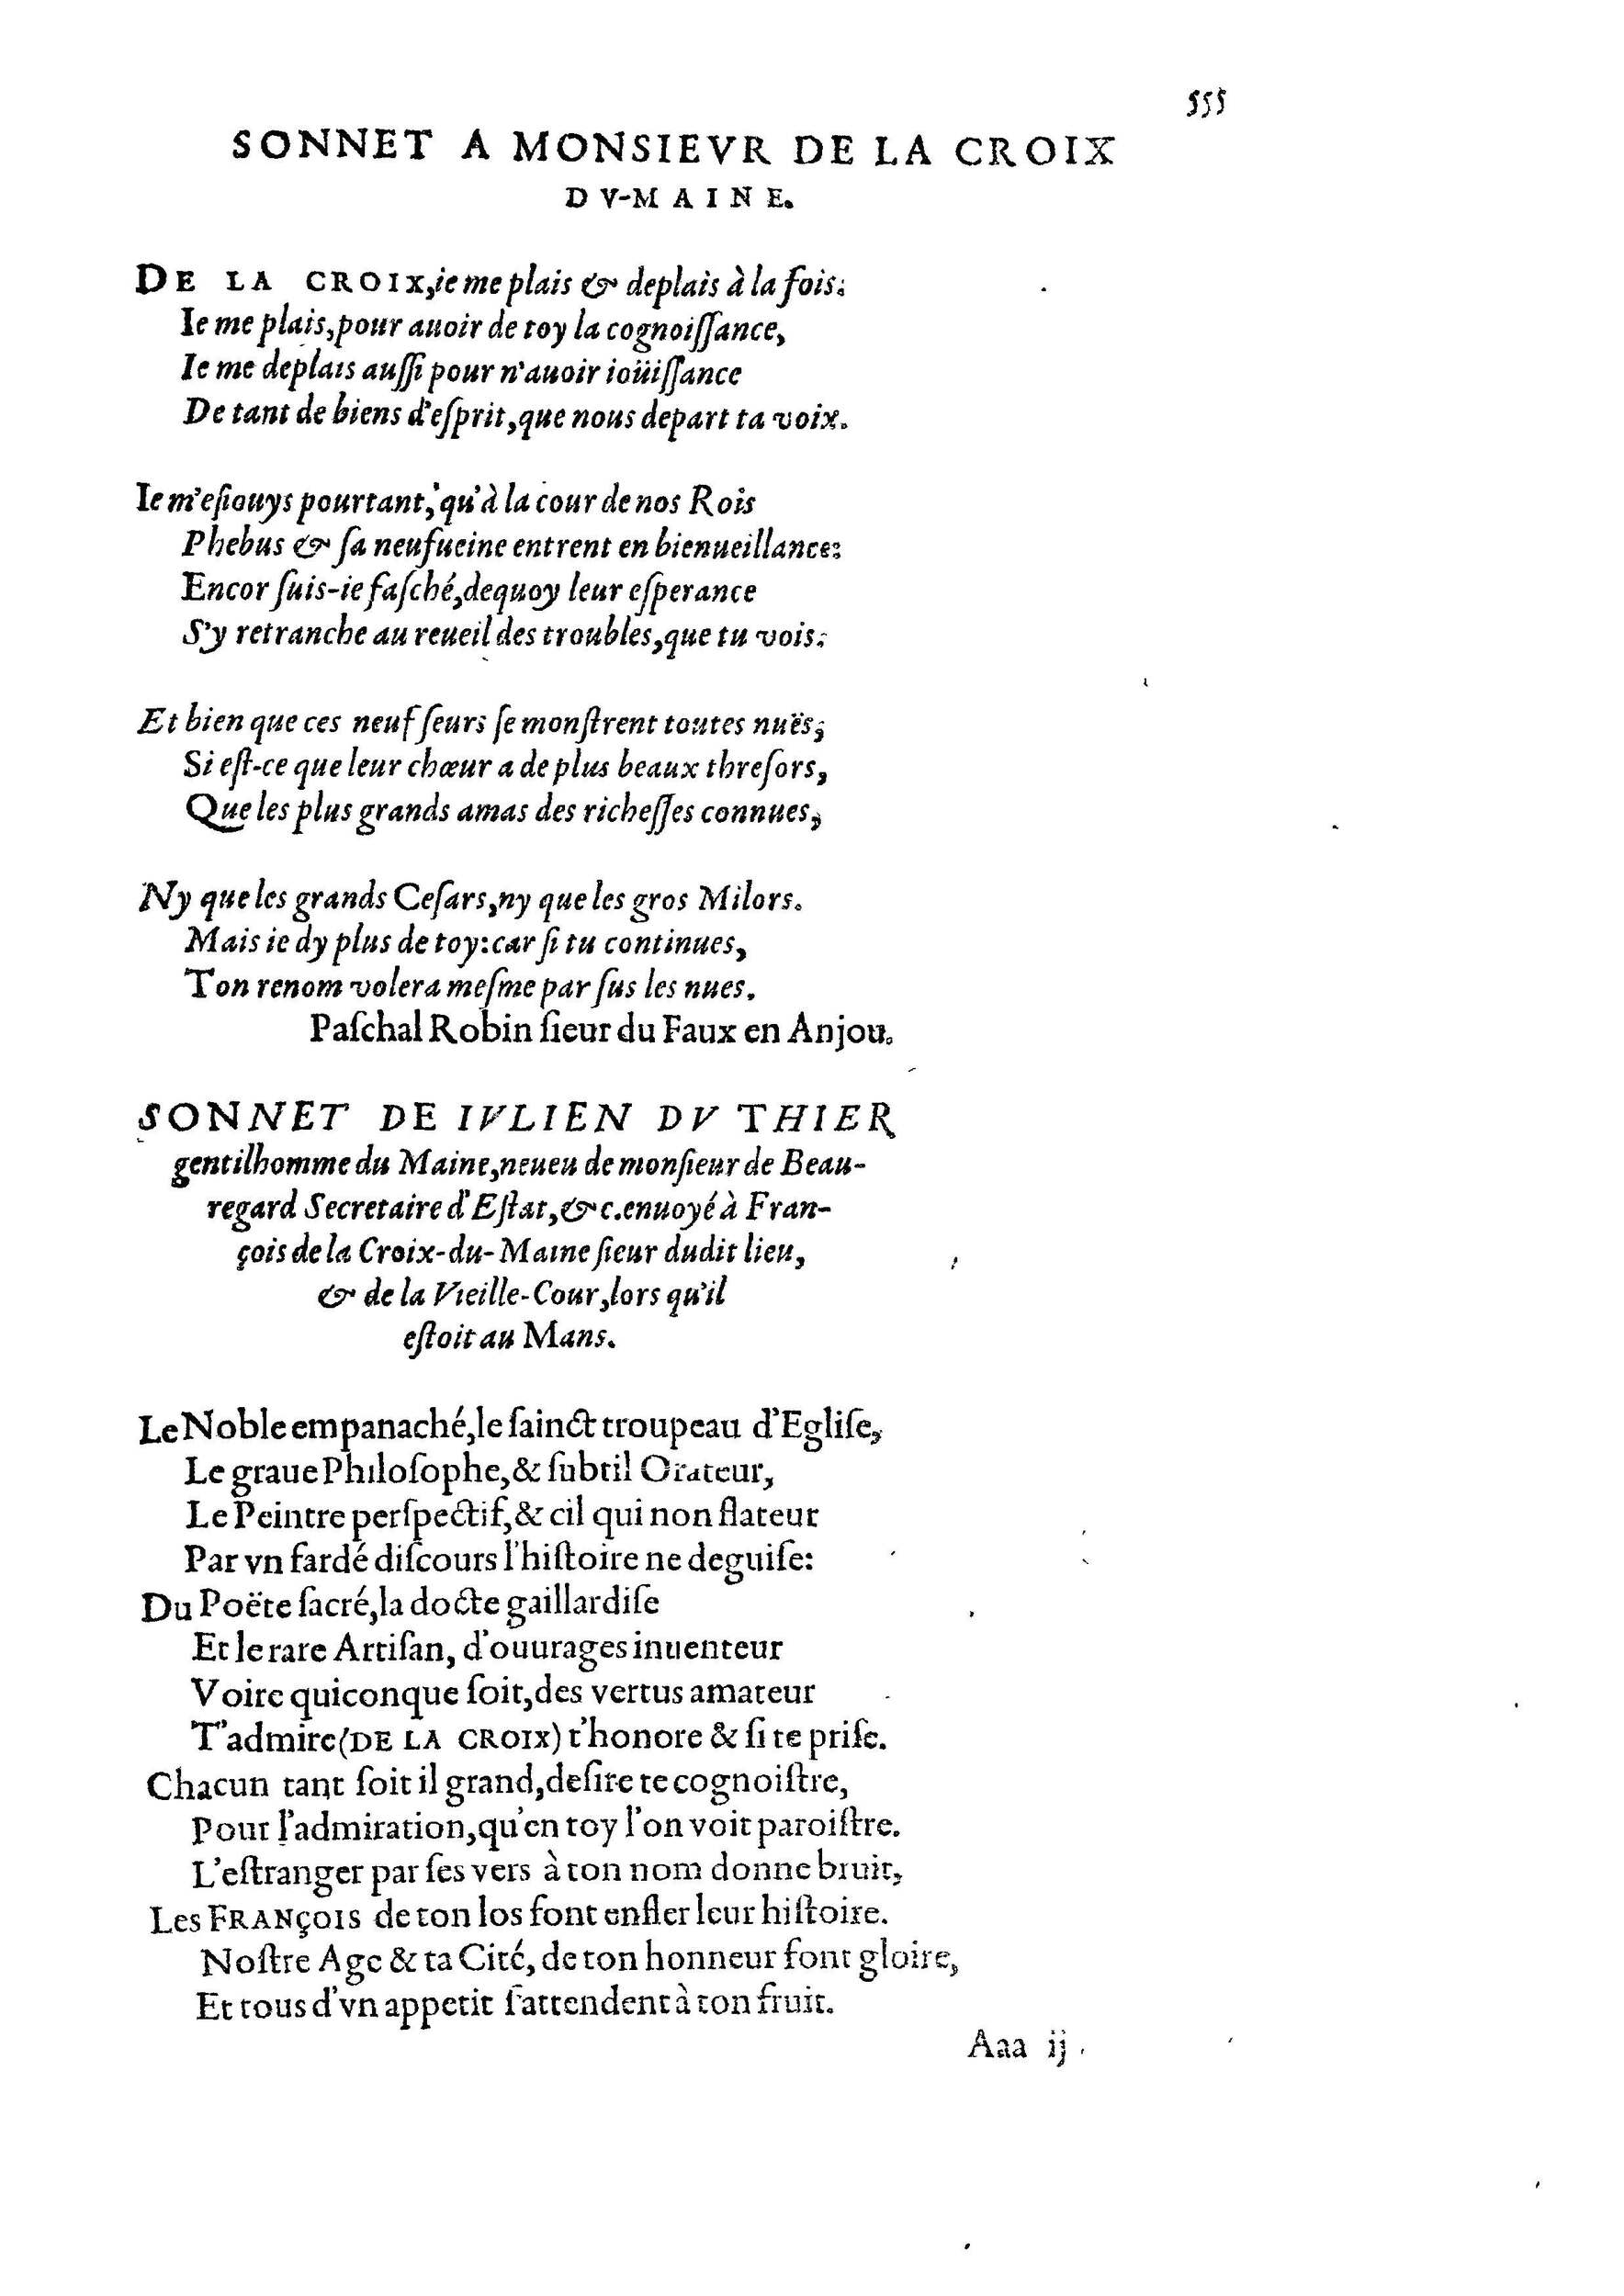 555
SONNET A MONSIEVR DE LA CROIX
DV-MAINE.
DE LA CROIX, ie me plais & deplais à la fois:
Ie me plais, pour auoir de toy la cognoiſſance,
Ie me deplais auſſi pour n'auoir ioüiſſance
De tant de biens d'eſprit, que nous depart ta voix.
Ie m'eſiouys pourtant, qu'à la cour de nos Rois
Phebus & ſa neufueine entrent en bienueillance:
Encor ſuis-ie faſché, dequoy leur eſperance
S'y retranche au reueil des troubles, que tu vois.
Et bien que ces neuf ſeurs ſe monſtrent toutes nuës,
Si eſt-ce que leur chœur a de plus beaux threſors,
Que les plus grands amas des richeſſes connues,
Ny que les grands Ceſars, ny que les gros Milors.
Mais ie dy plus de toy: car ſi tu continues,
Ton renom volera meſme par ſus les nues.
Paſchal Robin ſieur du Faux en Anjou.
SONNET DE IVLIEN DV THIER
gentilhomme du Maine, neueu de monſieur de Beau-
regard Secretaire d'Eſtat, &c. enuoyé à Fran-
çois de la Croix-du-Maine ſieur dudit lieu,
& de la Vieille-Cour, lors qu'il
eſtoit au Mans.
Le Noble empanaché, le ſainct troupeau d'Egliſe,
Le graue Philoſophe, & ſubtil Orateur,
Le Peintre perſpectif, & cil qui non flateur
Par vn fardé diſcours l'hiſtoire ne deguiſe:
Du Poëte ſacré, la docte gaillardiſe
Et le rare Artiſan, d'ouurages inuenteur
Voire quiconque ſoit, des vertus amateur
T'admire (DE LA CROIX) t'honore & ſi te priſe.
Chacun tant ſoit il grand, deſire te cognoiſtre,
Pour l'admiration, qu'en toy l'on voit paroiſtre.
L'eſtranger par ſes vers à ton nom donne bruit,
Les FRANÇOIS de ton los font enfler leur hiſtoire.
Noſtre Age & ta Cité, de ton honneur font gloire,
Et tous d'vn appetit ſ'attendent à ton fruit.
Aaa ij